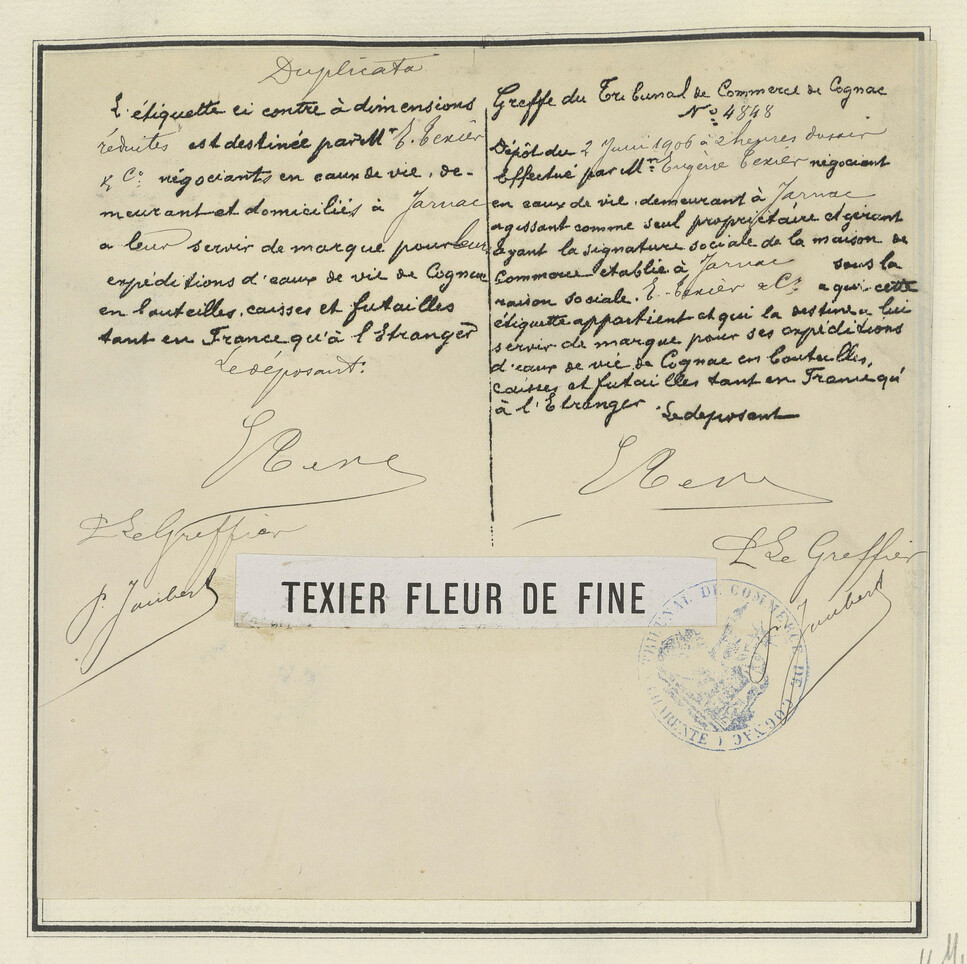 Duplicata
L'étiquette ci contre à dimensions
réduites est destinée par Mr E. Texier
& Co négociants en eaux de vie, de-
meurant et domiciliés à Jarnac
a leur servir de marque pour leurs
expéditions d'eaux de vie de Cognac
en bouteilles, caisses et futailles
tant en France qu'à l'Etranger
Le déposant.
P Le Greffier
J. Joubert
Greffe du Tribunal de Commerce de Cognac
No 4848
Dépôt du 2 Juin 1906 à 2 heures du soir
Effectué par Mr Eugène Texier négociant
en eaux de vie, demeurant à Jarnac
agissant comme seul propriétaire et gérant
ayant la signature sociale de la maison de
Commerce établie à Jarnac sous la
raison sociale. E. Texier & Co a qui cette
étiquette appartient et qui la destine a lui
servir de marque pour ses expéditions
d'eaux de vie de Cognac en bouteilles,
caisses et futailles tant en France qu'
à l'Etranger Le déposant
P Le Greffier
Joubert
TEXIER FLEUR DE FINE
TRIBUNAL DE COMMERCE DE COGNAC
(CHARENTE)